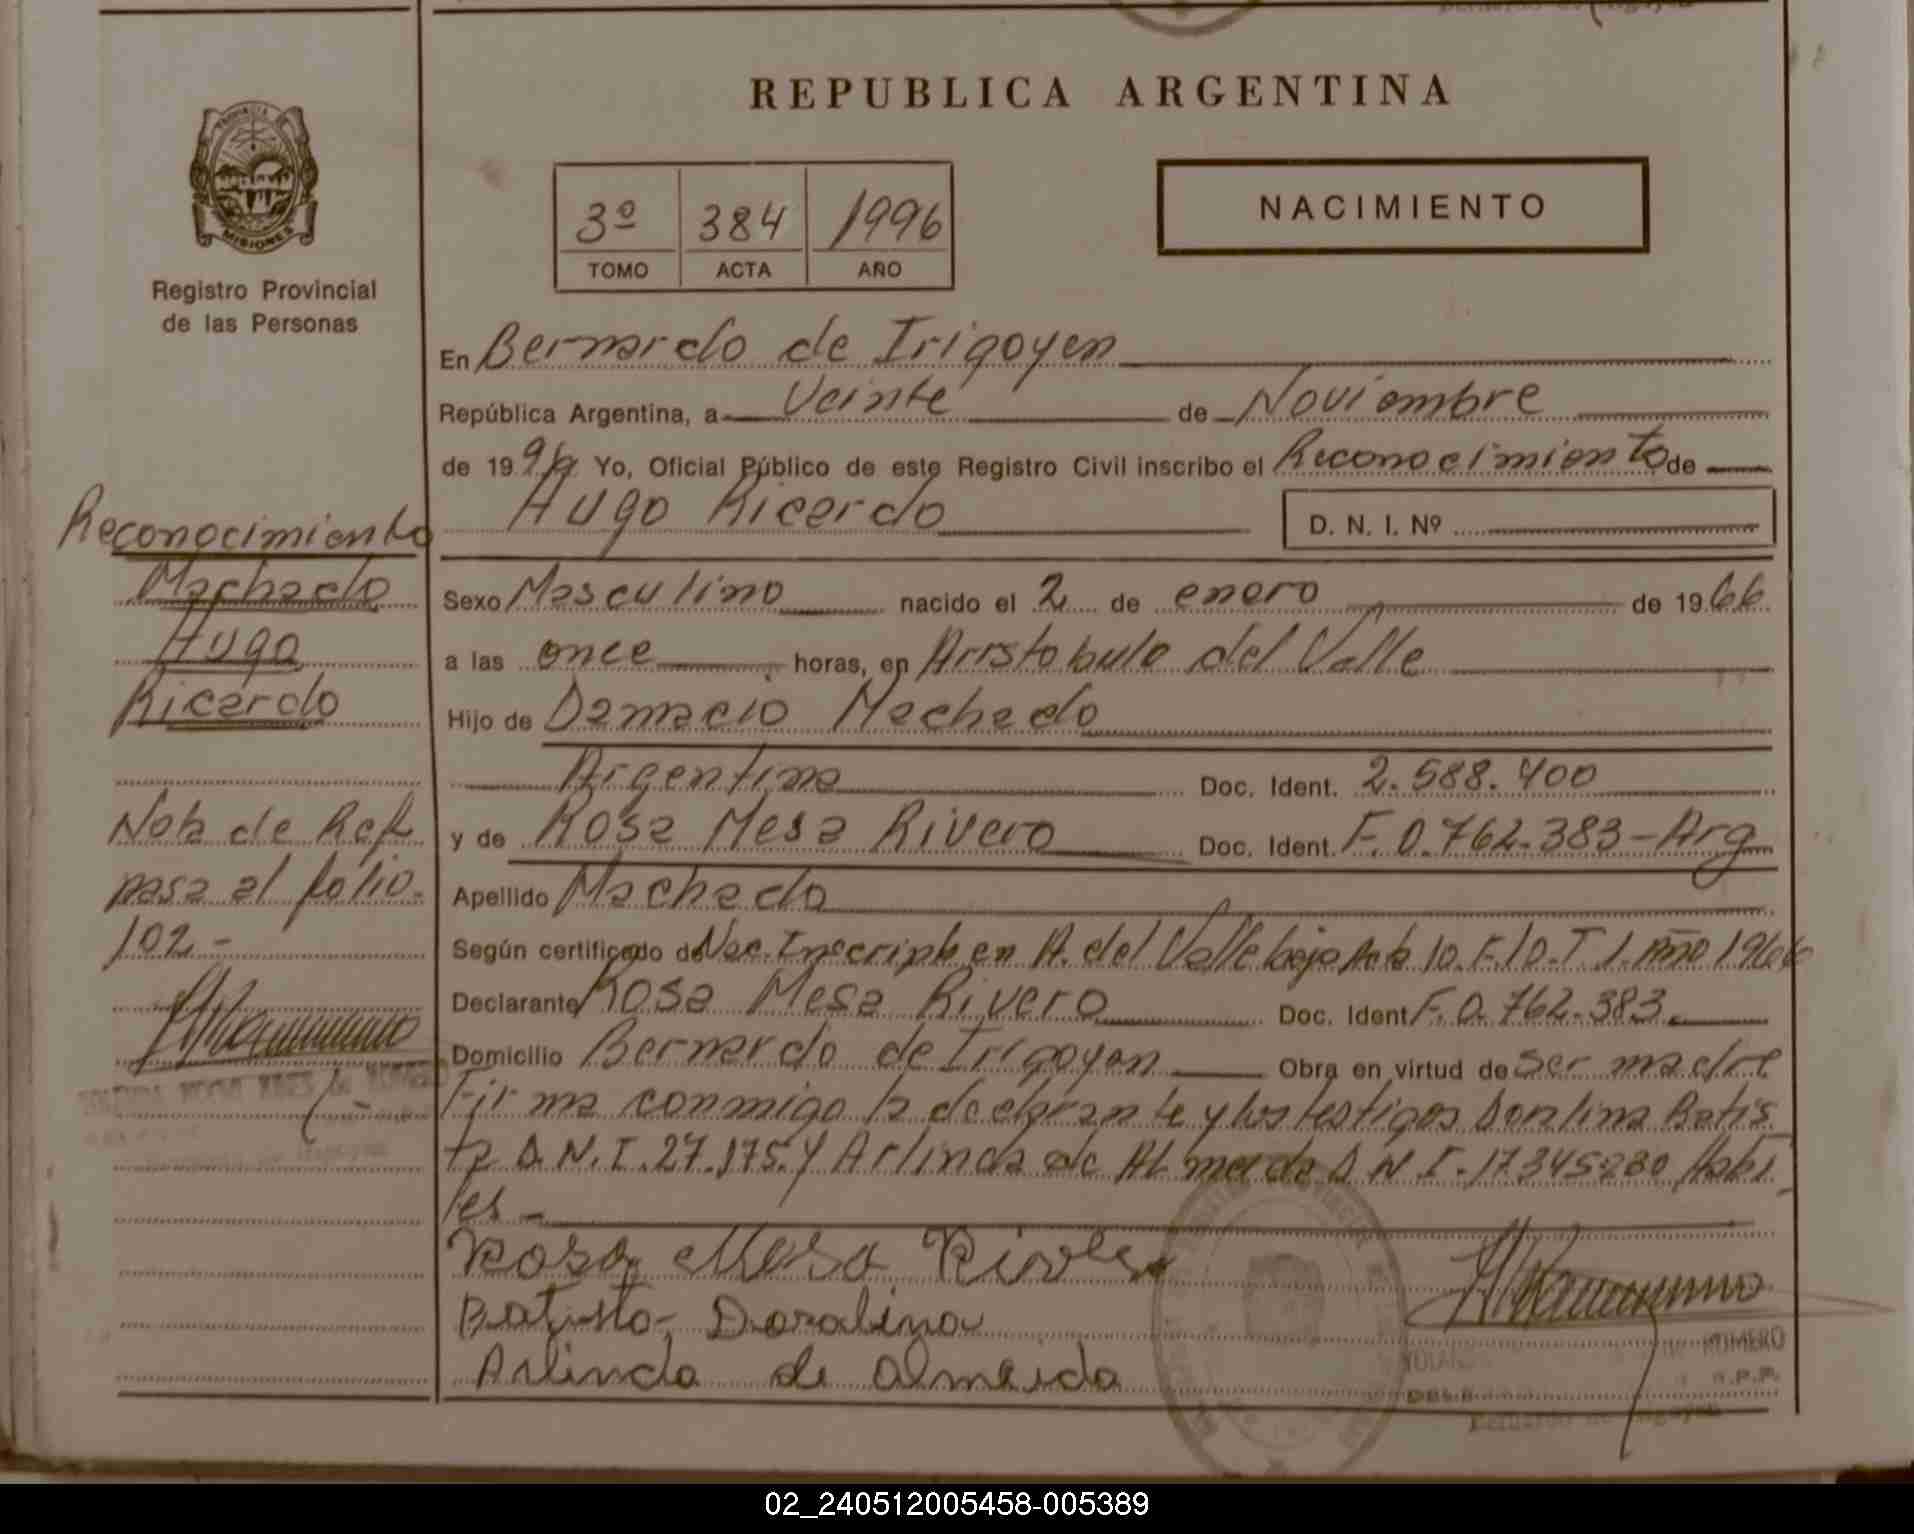 REPUBLICA ARGENTINA
PROVINCIA DE
MISIONES
Registro Provincial
de las Personas
3º 384 1996
TOMO ACTA AÑO
NACIMIENTO
En Bernardo de Irigoyen
República Argentina, a Veinte de Noviembre
de 199 Yo, Oficial Público de este Registro Civil inscribo el Reconocimiento de
Hugo Ricardo D. N. I. Nº
Reconocimiento
Machado
Hugo
Ricardo
Nota de Ref.
pasa al fólio.
102-
Sexo Masculino nacido el 2 de enero de 1966
a las once horas, en Aristobulo del Valle
Hijo de Damacio Machado
Argentina Doc. Ident. 2.588.400
y de Rosa Mesa Rivero Doc. Ident. F.0.762.383-Arg
Apellido Machado
Según certificado de Nac. Inscripto en A. del Valle bajo Acta 10.F.10.T 1. Año 1966
Declarante Rosa Mesa Rivero Doc. Ident F.0.762.383.
Domicilio Bernardo de Irigoyen Obra en virtud de ser madre
Firma conmigo la declarante y los testigos Doralina Batis
ta D.N.I. 27.175. y Arlinda de Almeida D.N.I. 17.345.280 Habi
les-
Rosa Mesa Rivero
Batista, Doralina
Arlinda de almeida
NUMERO
Bernardo de Irigoyen
02_240512005458-005389